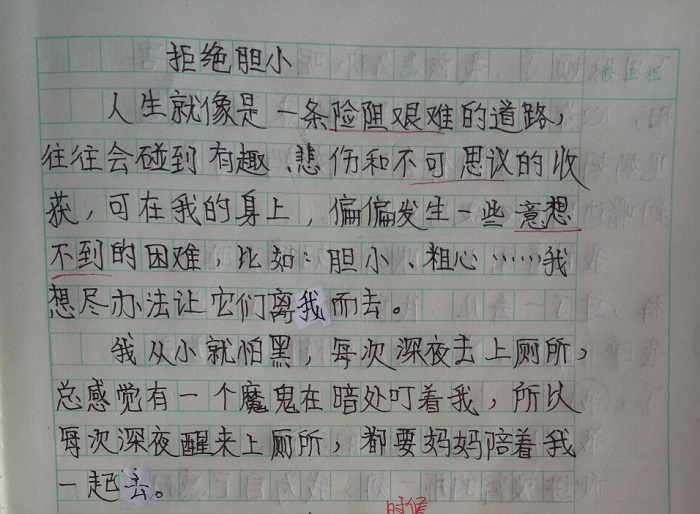 拒绝胆小
人生就像是一条险阻艰难的道路，
往往会碰到有趣、悲伤和不可思议的收
获，可在我的身上，偏偏发生一些意想
不到的困难，比如：胆小、粗心……我
想尽办法让它们离我而去。
我从小就怕黑，每次深夜去上厕所，
总感觉有一个魔鬼在暗处叮着我，所以
每次深夜醒来上厕所，都要妈妈陪着我
一起去。
时候